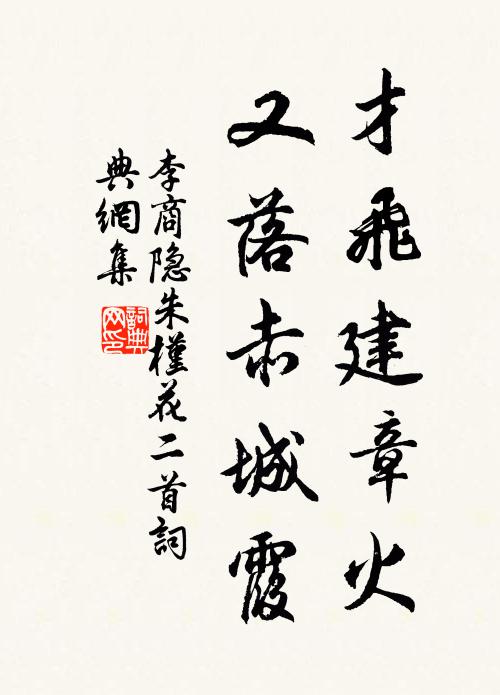 才飛建章火
又落赤城霞
李商隐朱槿花二首詞
典網集
詞典
网印